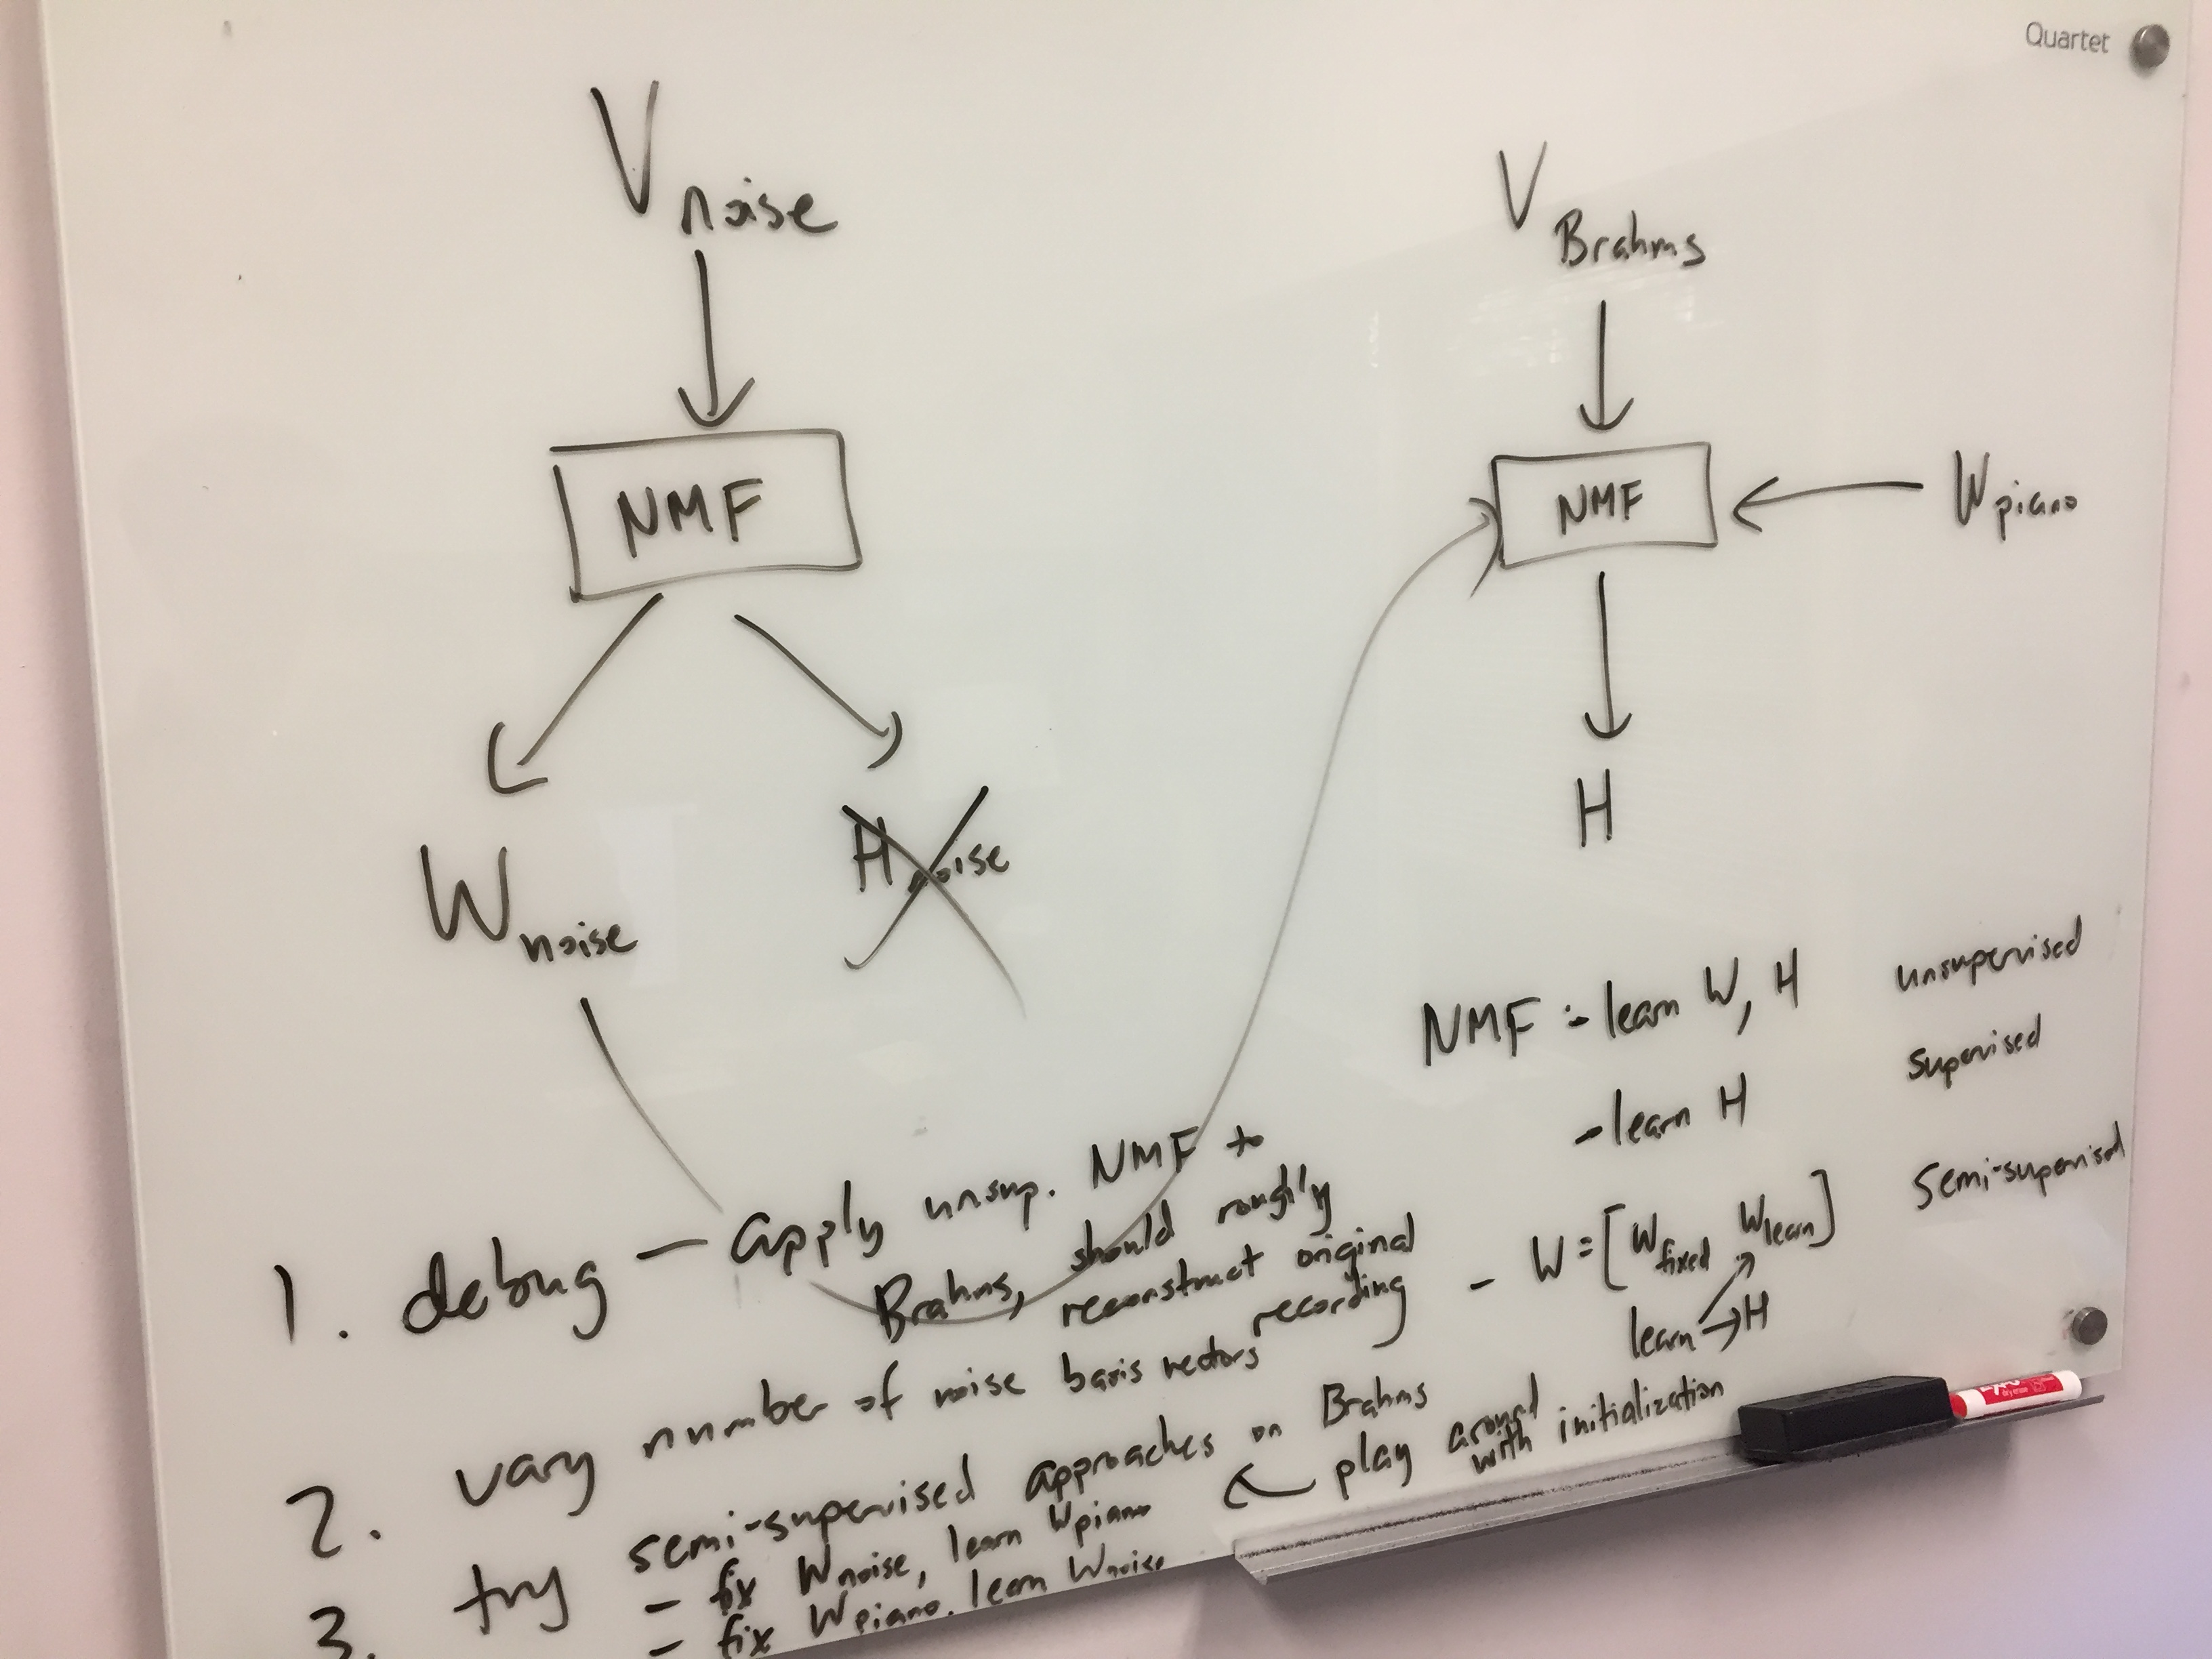 Quartet
V noise
NMF
W noise
H noise
V Brahms
NMF
W piano
H
NMF :- learn W, H unsupervised
- learn H supervised
- W = [W fixed W learn] semi-supervised
learn → H
1. debug — apply unsup. NMF to
Brahms, should roughly
reconstruct original
recording
2. vary number of noise basis vectors
3. try semi-supervised approaches on Brahms
- fix Wnoise, learn Wpiano
- fix Wpiano, learn Wnoise
play around
with initialization